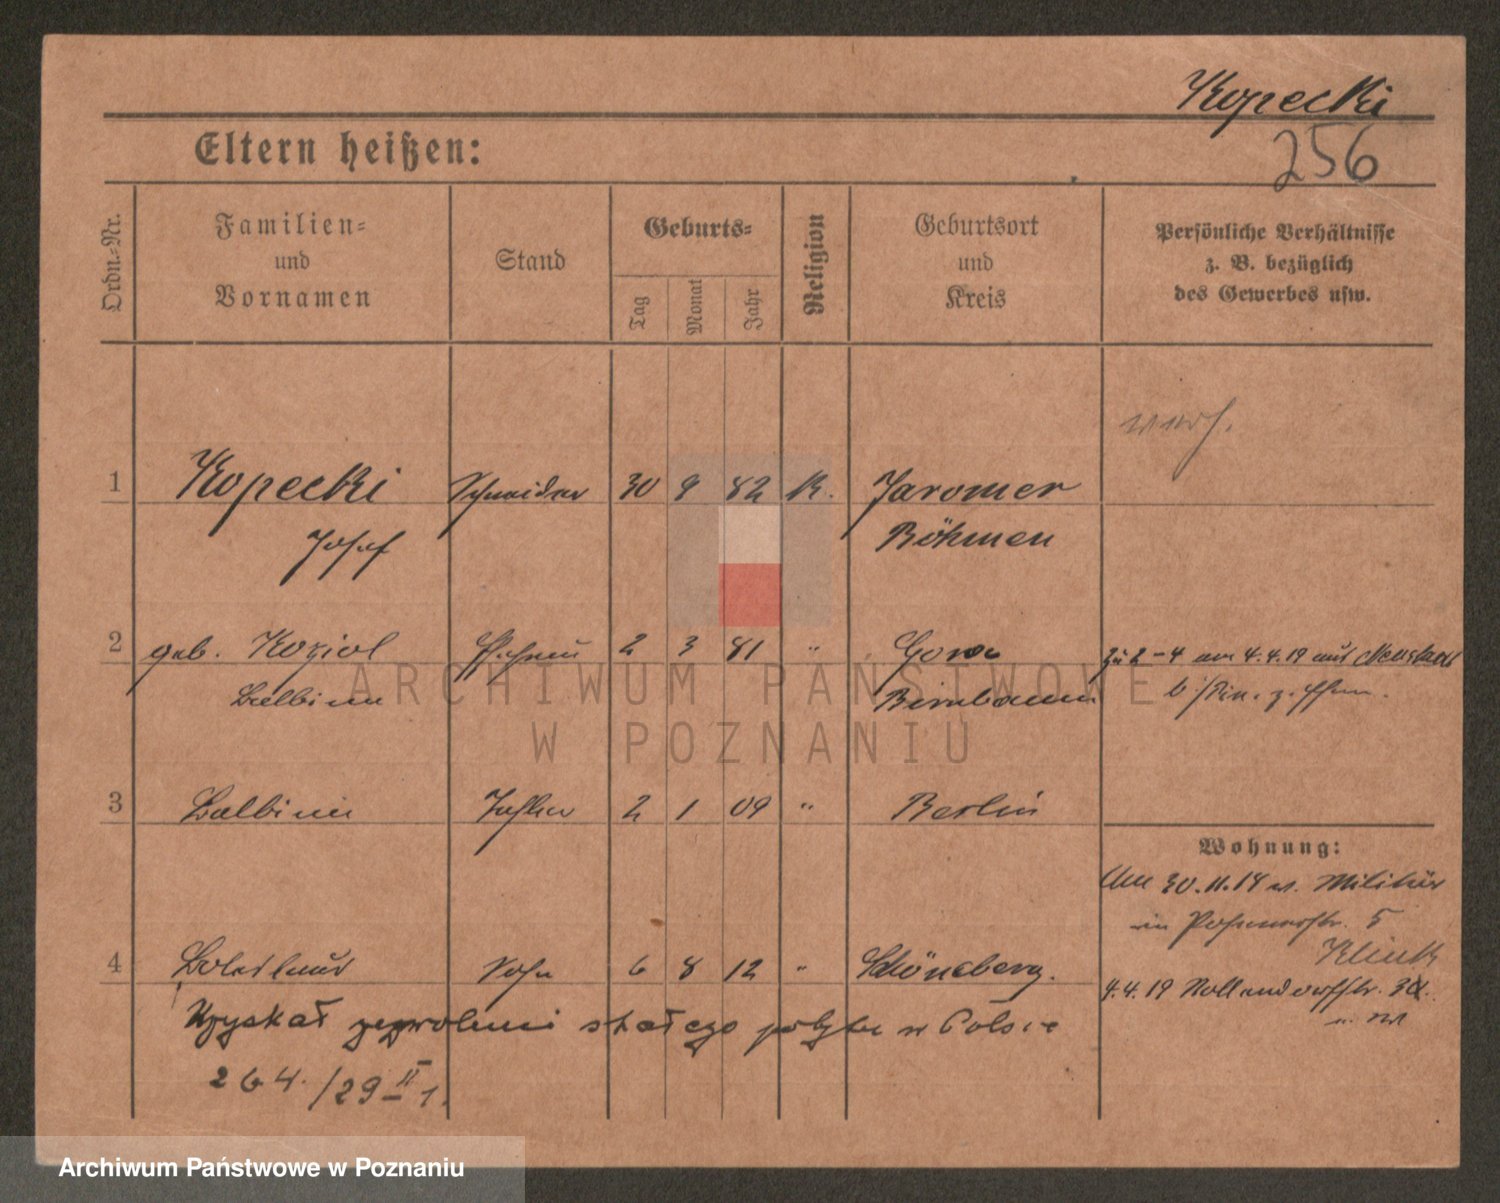 Kopecki
256
Eltern heißen:
Ordn.-Nr.
Familien-
und
Vornamen
Stand
Geburts-
Tag
Monat
Jahr
Religion
Geburtsort
und
Kreis
Persönliche Verhältnisse
z. B. bezüglich
des Gewerbes usw.
verh.
1 Kopecki Schneider 30 9 82 K. Jaromer
Josef Böhmen
2 geb. Koziol Ehefrau 2 3 81 " Gora zu 2-4 am 4.4.19 aus
Balbina Birnbaum
3 Balbina Tochter 2 1 09 " Berlin
Wohnung:
Am 30.11.18 v. Militär
in Posenerstr. 5
Klink
4 Boleslaus Sohn 6 8 12 " Schöneberg.
4.4.19 Nollendorfstr. 32.
Uzyskał zezwolenie stałego pobytu w Polsce
264/29 II 1.
ARCHIWUM PAŃSTWOWE
W POZNANIU
Archiwum Państwowe w Poznaniu